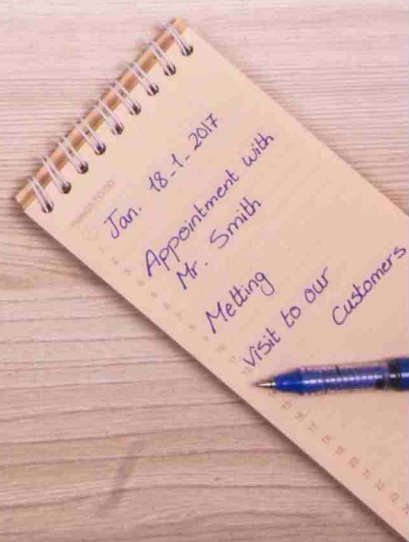 Jan. 18-1-2017
Appointment with
Mr. Smith
Metting
Visit to our
Customers